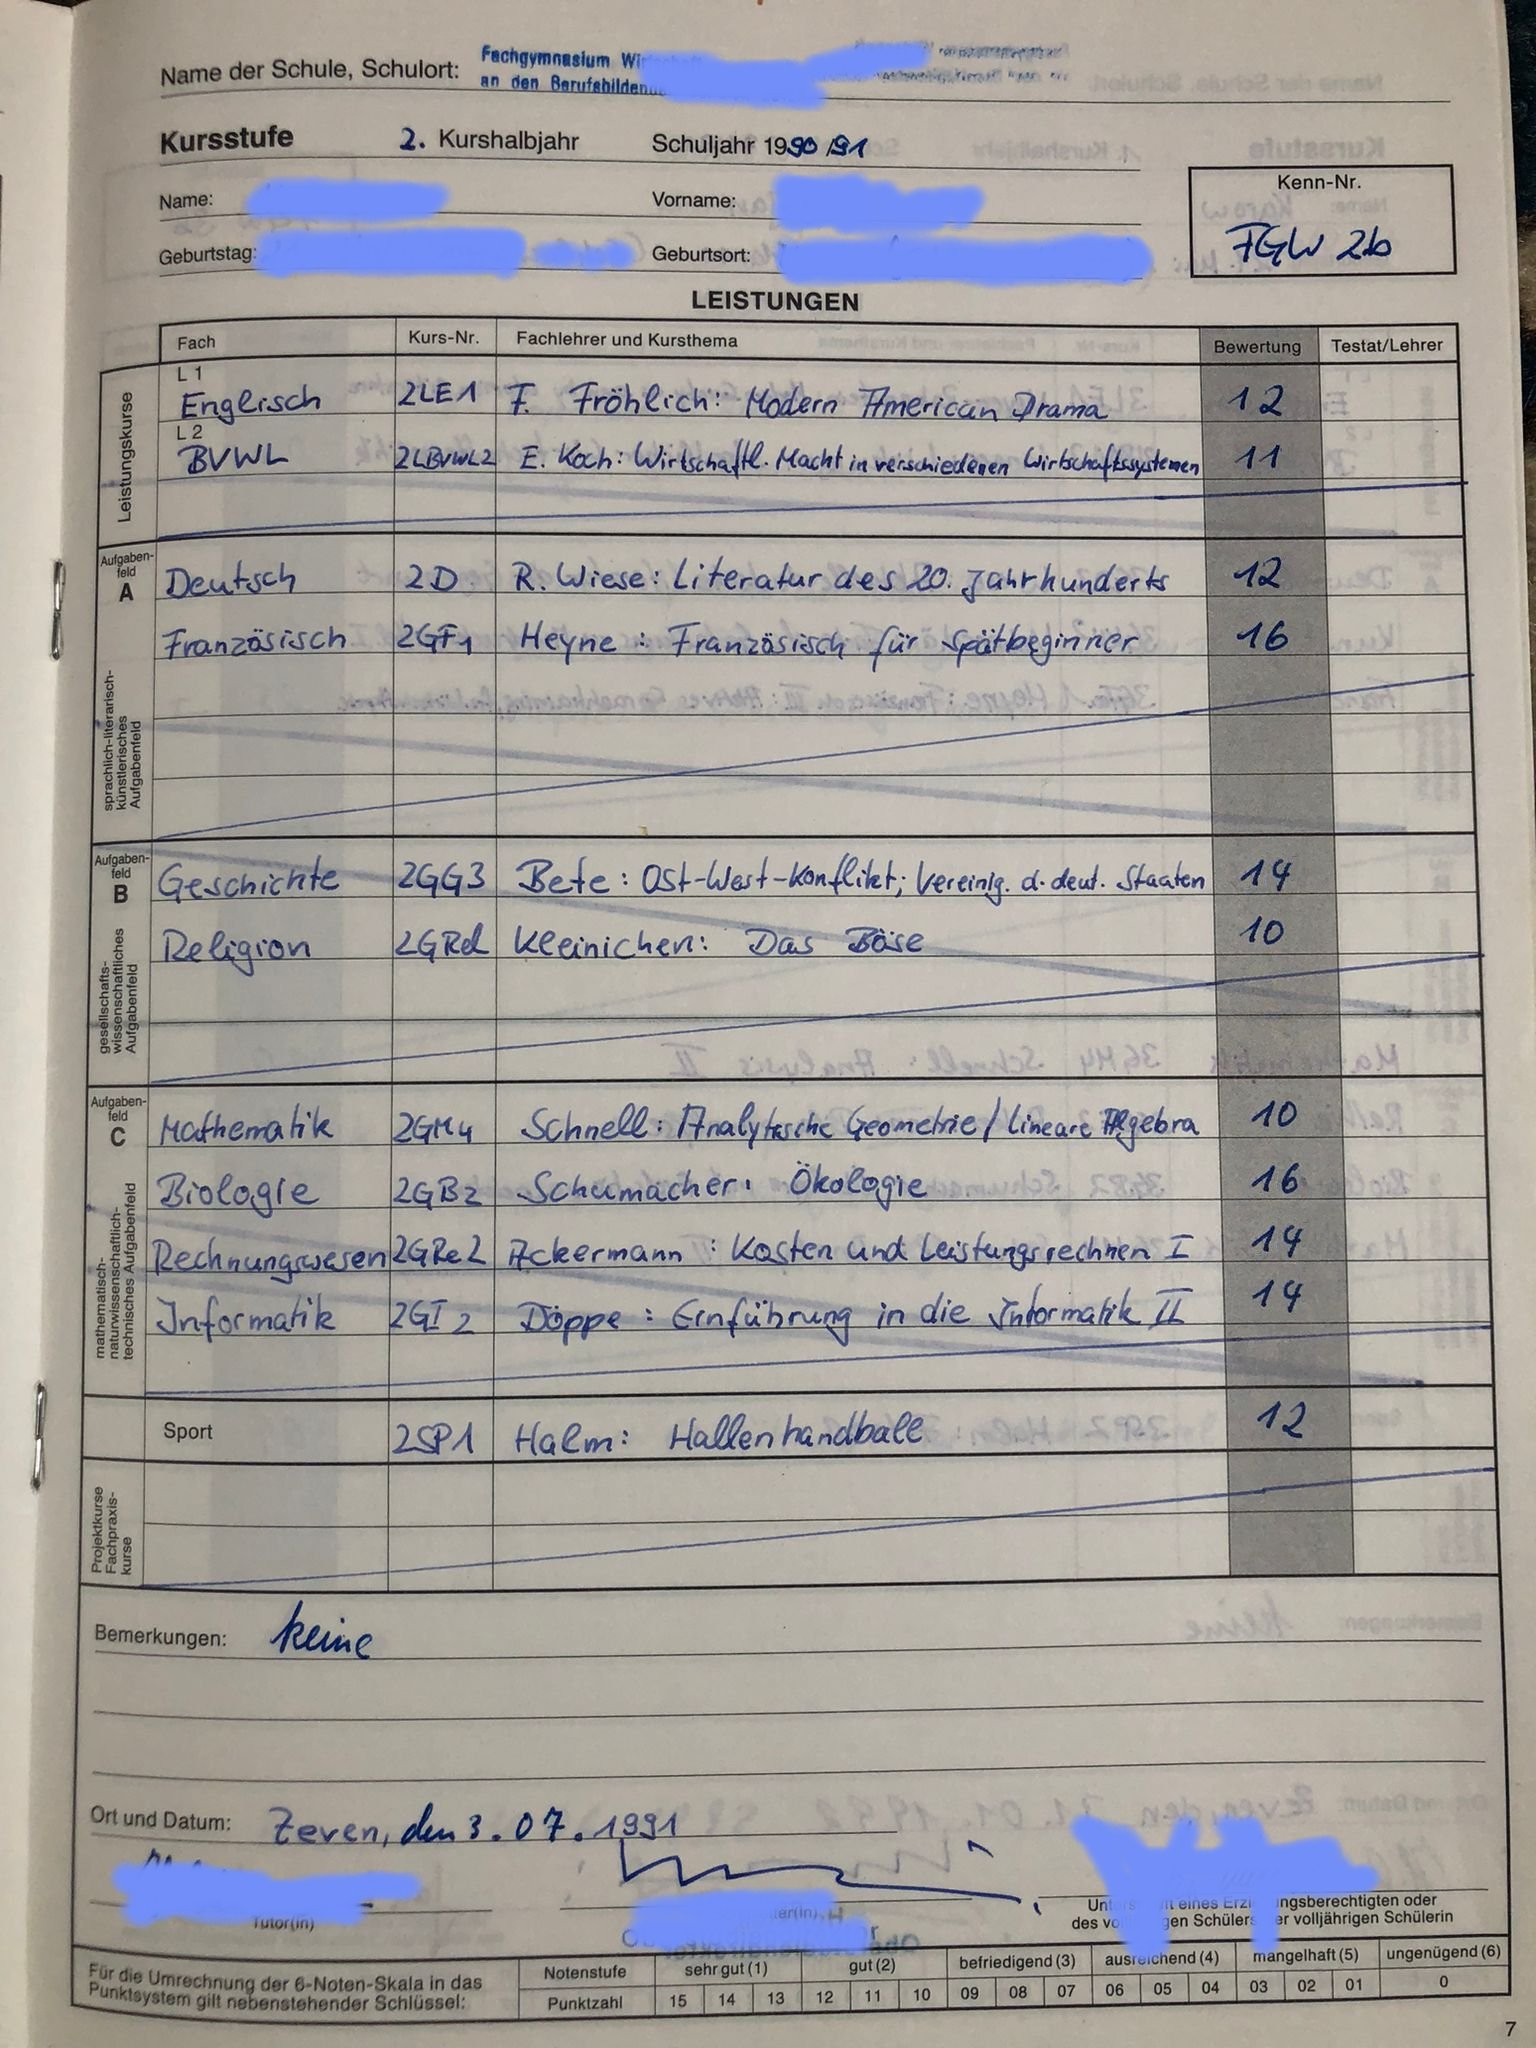 Name der Schule, Schulort: Fachgymnasium
an den
Kursstufe 2. Kurshalbjahr Schuljahr 1990/91
Name: Vorname: Kenn-Nr.
Geburtstag: Geburtsort: FGW 2b
LEISTUNGEN
Fach Kurs-Nr. Fachlehrer und Kursthema Bewertung Testat/Lehrer
Leistungskurse
L 1
Englisch 2LE1 F. Fröhlich: Modern American Drama 12
L 2
BVWL 2LBVWL2 E. Koch: Wirtschaftl. Macht in verschiedenen Wirtschaftssystemen 11
Aufgaben-
feld
A
sprachlich-literarisch-
künstlerisches
Aufgabenfeld
Deutsch 2D R. Wiese: Literatur des 20. Jahrhunderts 12
Französisch 2GF1 Heyne: Französisch für Spätbeginner 16
Aufgaben-
feld
B
gesellschafts-
wissenschaftliches
Aufgabenfeld
Geschichte 2GG3 Bete: Ost-West-Konflikt; Vereinig. d. deut. Staaten 14
Religion 2GRd Kleinichen: Das Böse 10
Aufgaben-
feld
C
mathematisch-
naturwissenschaftlich-
technisches Aufgabenfeld
Mathematik 2GM4 Schnell: Analytische Geometrie/Lineare Algebra 10
Biologie 2GB2 Schumacher: Ökologie 16
Rechnungswesen 2GRe2 Ackermann: Kosten und Leistungsrechnen I 14
Informatik 2GI2 Döppe: Einführung in die Informatik II 14
Sport 2SP1 Halm: Hallenhandball 12
Projektkurse
Fachpraxis-
kurse
Bemerkungen: keine
Ort und Datum: Zeven, den 3.07.1991
Tutor(in)
eines ngsberechtigten oder
des gen Schülers er volljährigen Schülerin
Für die Umrechnung der 6-Noten-Skala in das
Punktsystem gilt nebenstehender Schlüssel:
Notenstufe sehr gut (1) gut (2) befriedigend (3) ausreichend (4) mangelhaft (5) ungenügend (6)
Punktzahl 15 14 13 12 11 10 09 08 07 06 05 04 03 02 01 0
7